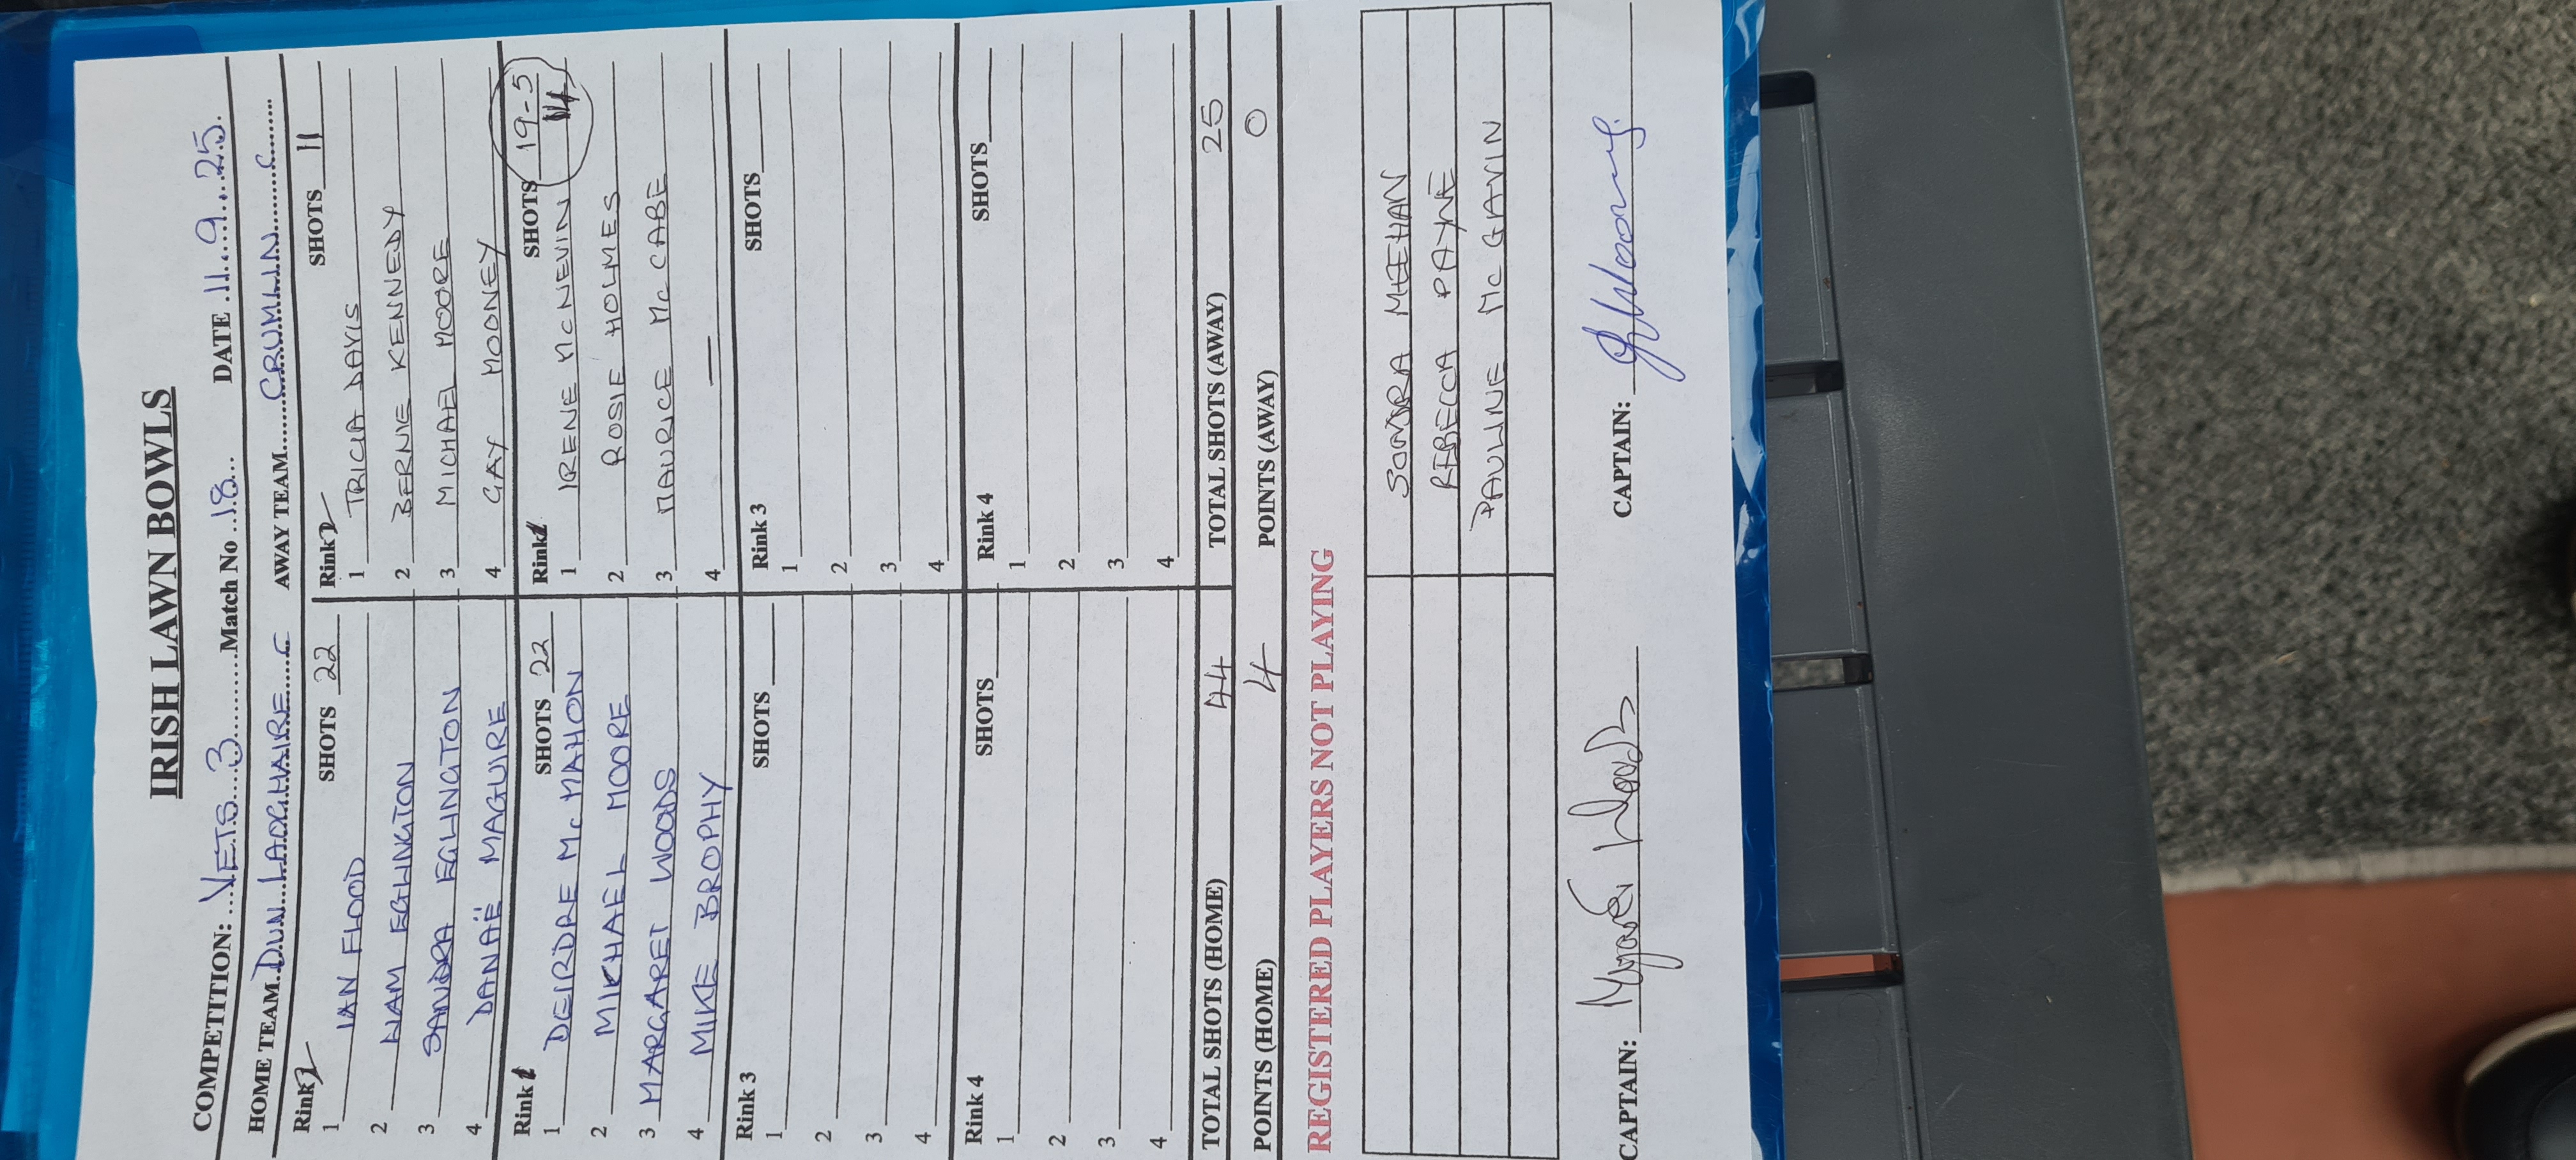 IRISH LAWN BOWLS
COMPETITION: VETS 3 Match No 18 DATE 11.9.25.
HOME TEAM DUN LAOGHAIRE C AWAY TEAM CRUMLIN C
Rink 2 SHOTS 22 Rink 2 SHOTS 11
1 IAN FLOOD 1 TRICIA DAVIS
2 LIAM EGLINGTON 2 BERNIE KENNEDY
3 SANDRA EGLINGTON 3 MICHAEL MOORE
4 DANAË MAGUIRE 4 GAY MOONEY
Rink 1 SHOTS 22 Rink 1 SHOTS 19-5
1 DEIRDRE Mc MAHON 1 IRENE McNEVIN 14
2 MICHAEL MOORE 2 ROSIE HOLMES
3 MARGARET WOODS 3 MAURICE McCABE
4 MIKE BROPHY 4 —
Rink 3 SHOTS Rink 3 SHOTS
1 1
2 2
3 3
4 4
Rink 4 SHOTS Rink 4 SHOTS
1 1
2 2
3 3
4 4
TOTAL SHOTS (HOME) 44 TOTAL SHOTS (AWAY) 25
POINTS (HOME) 4 POINTS (AWAY) 0
REGISTERED PLAYERS NOT PLAYING
SONDRA MEEHAN
REBECCA PAYNE
PAULINE Mc GAVIN
CAPTAIN: Margaret Woods CAPTAIN: G Mooney